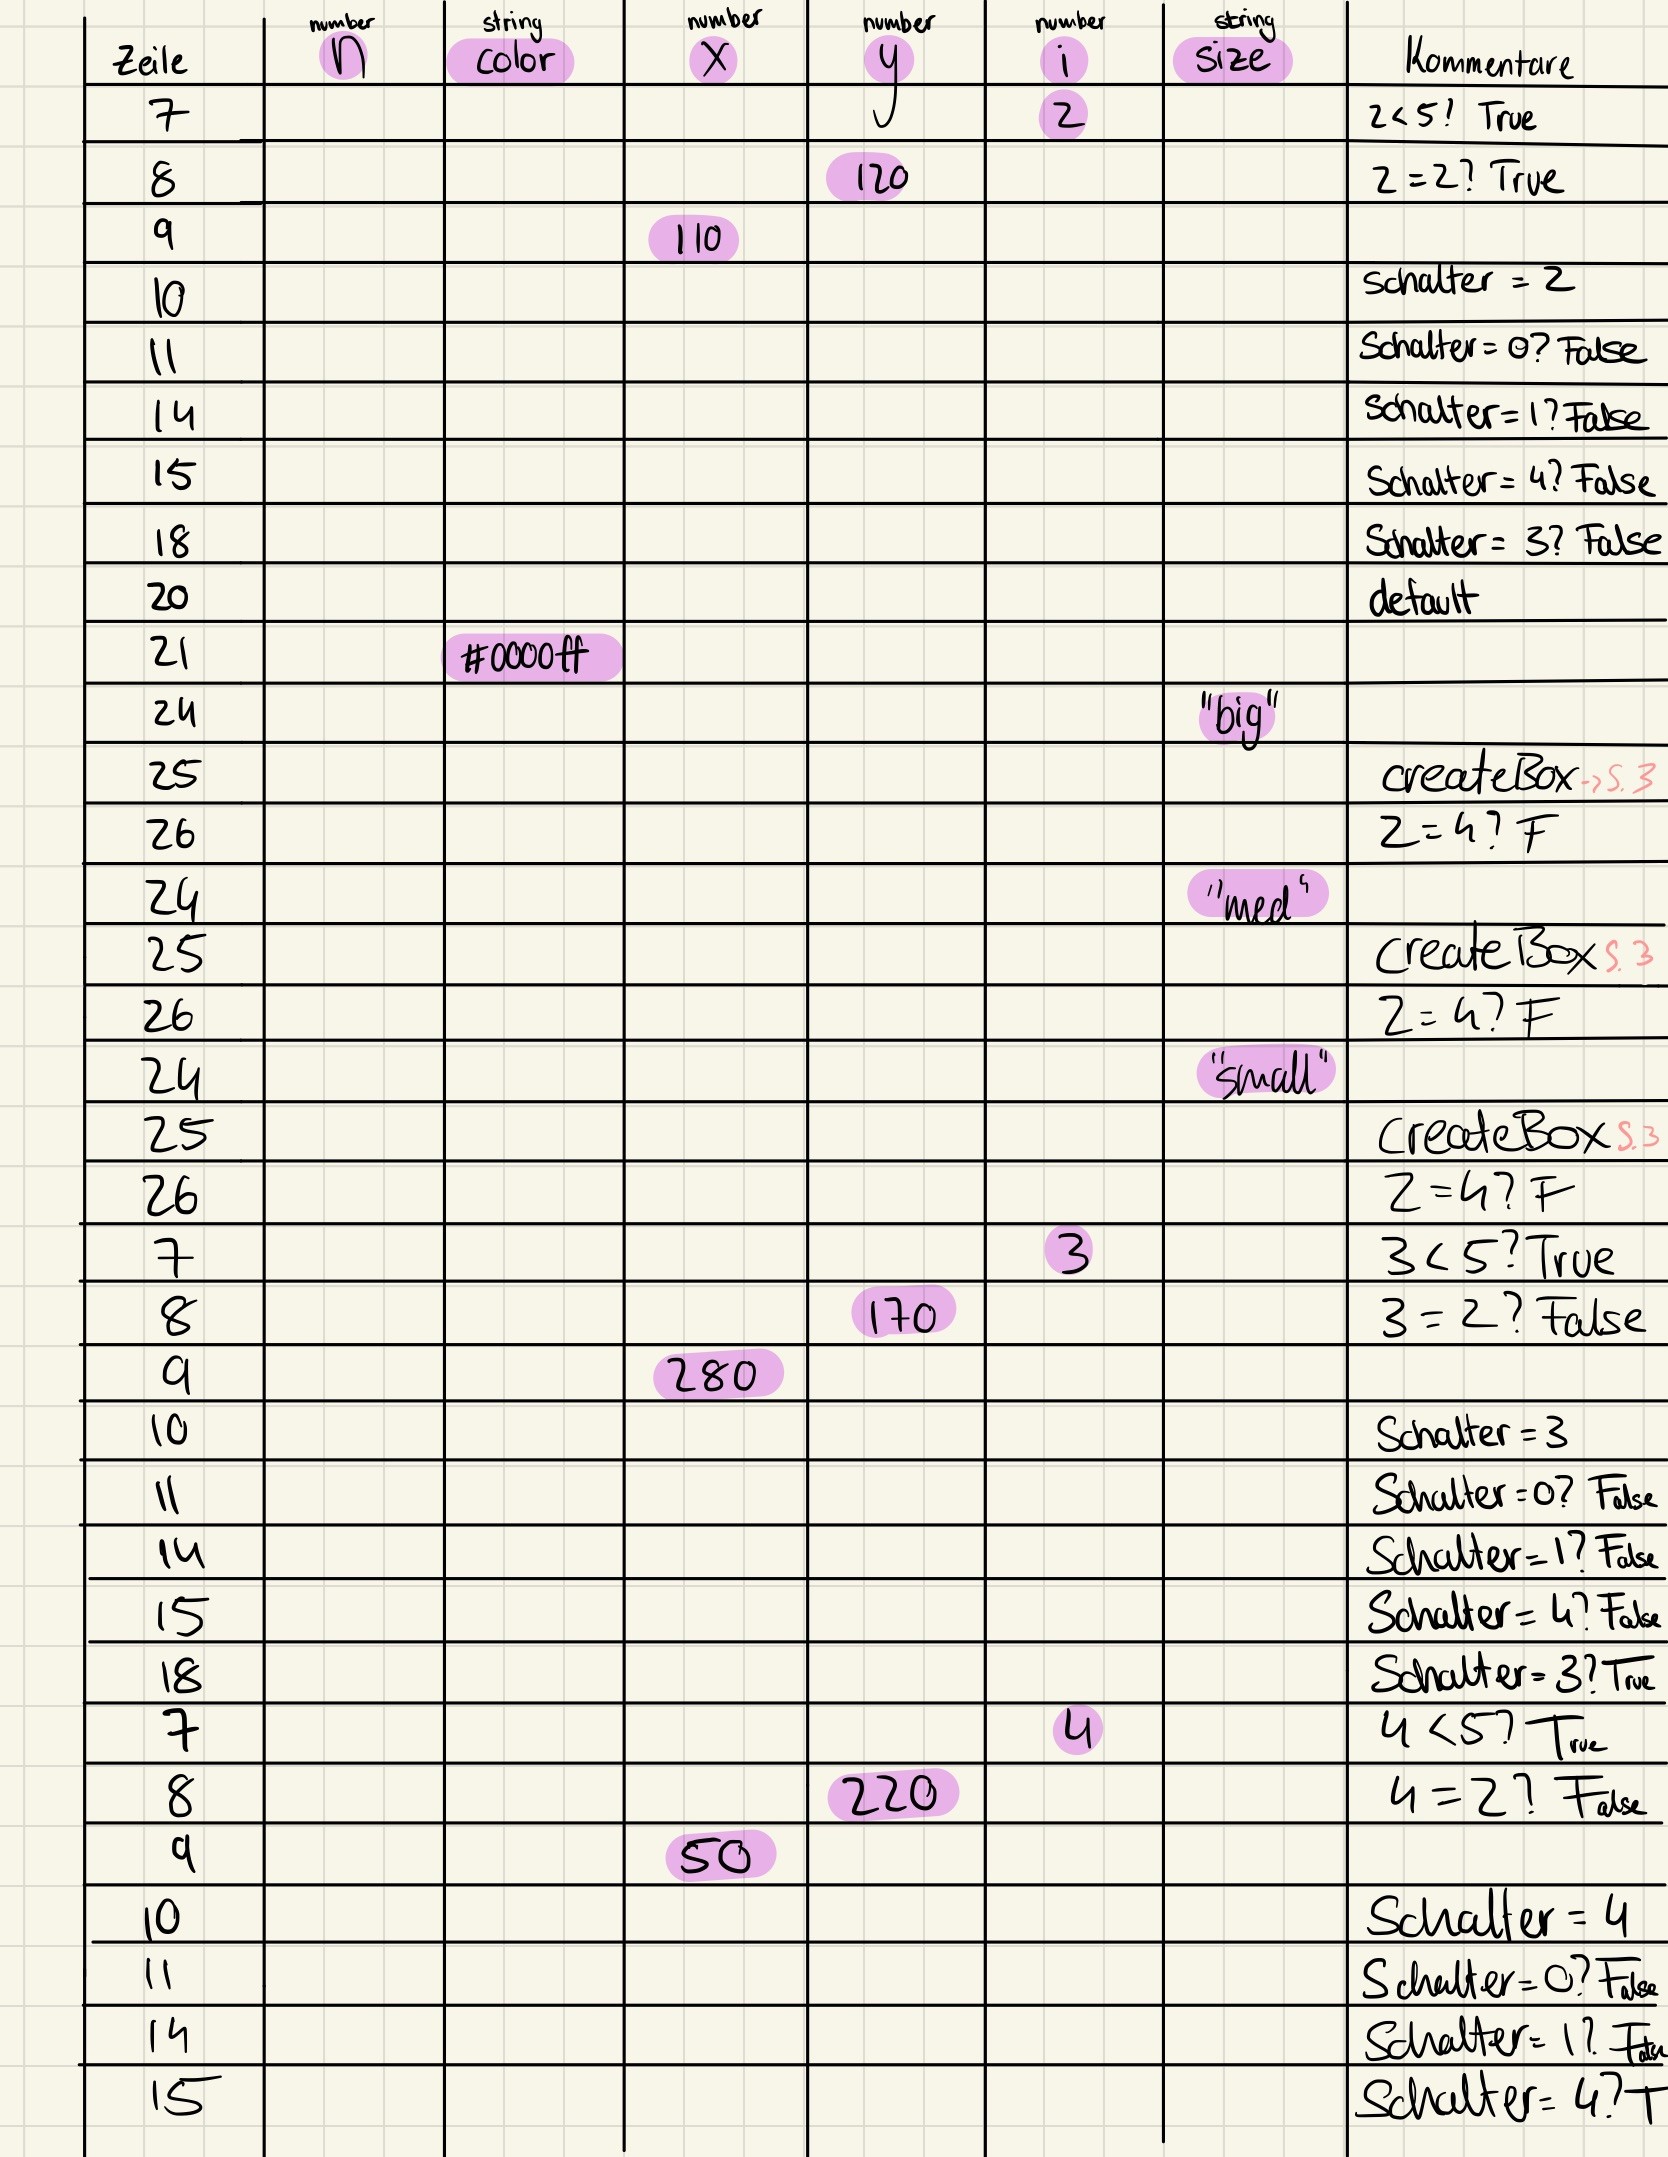 number string number number number string
Zeile n color x y i size Kommentare
7 2 2<5? True
8 120 2=2? True
9 110
10 schalter = 2
11 Schalter = 0? False
14 Schalter = 1? False
15 Schalter = 4? False
18 Schalter = 3? False
20 default
21 #0000ff
24 "big"
25 createBox -> S. 3
26 2=4? F
24 "med"
25 createBox S. 3
26 2=4? F
24 "small"
25 createBox S. 3
26 2=4? F
7 3 3<5? True
8 170 3=2? False
9 280
10 Schalter = 3
11 Schalter = 0? False
14 Schalter = 1? False
15 Schalter = 4? False
18 Schalter = 3? True
7 4 4<5? True
8 220 4=2? False
9 50
10 Schalter = 4
11 Schalter = 0? False
14 Schalter = 1? False
15 Schalter = 4? T